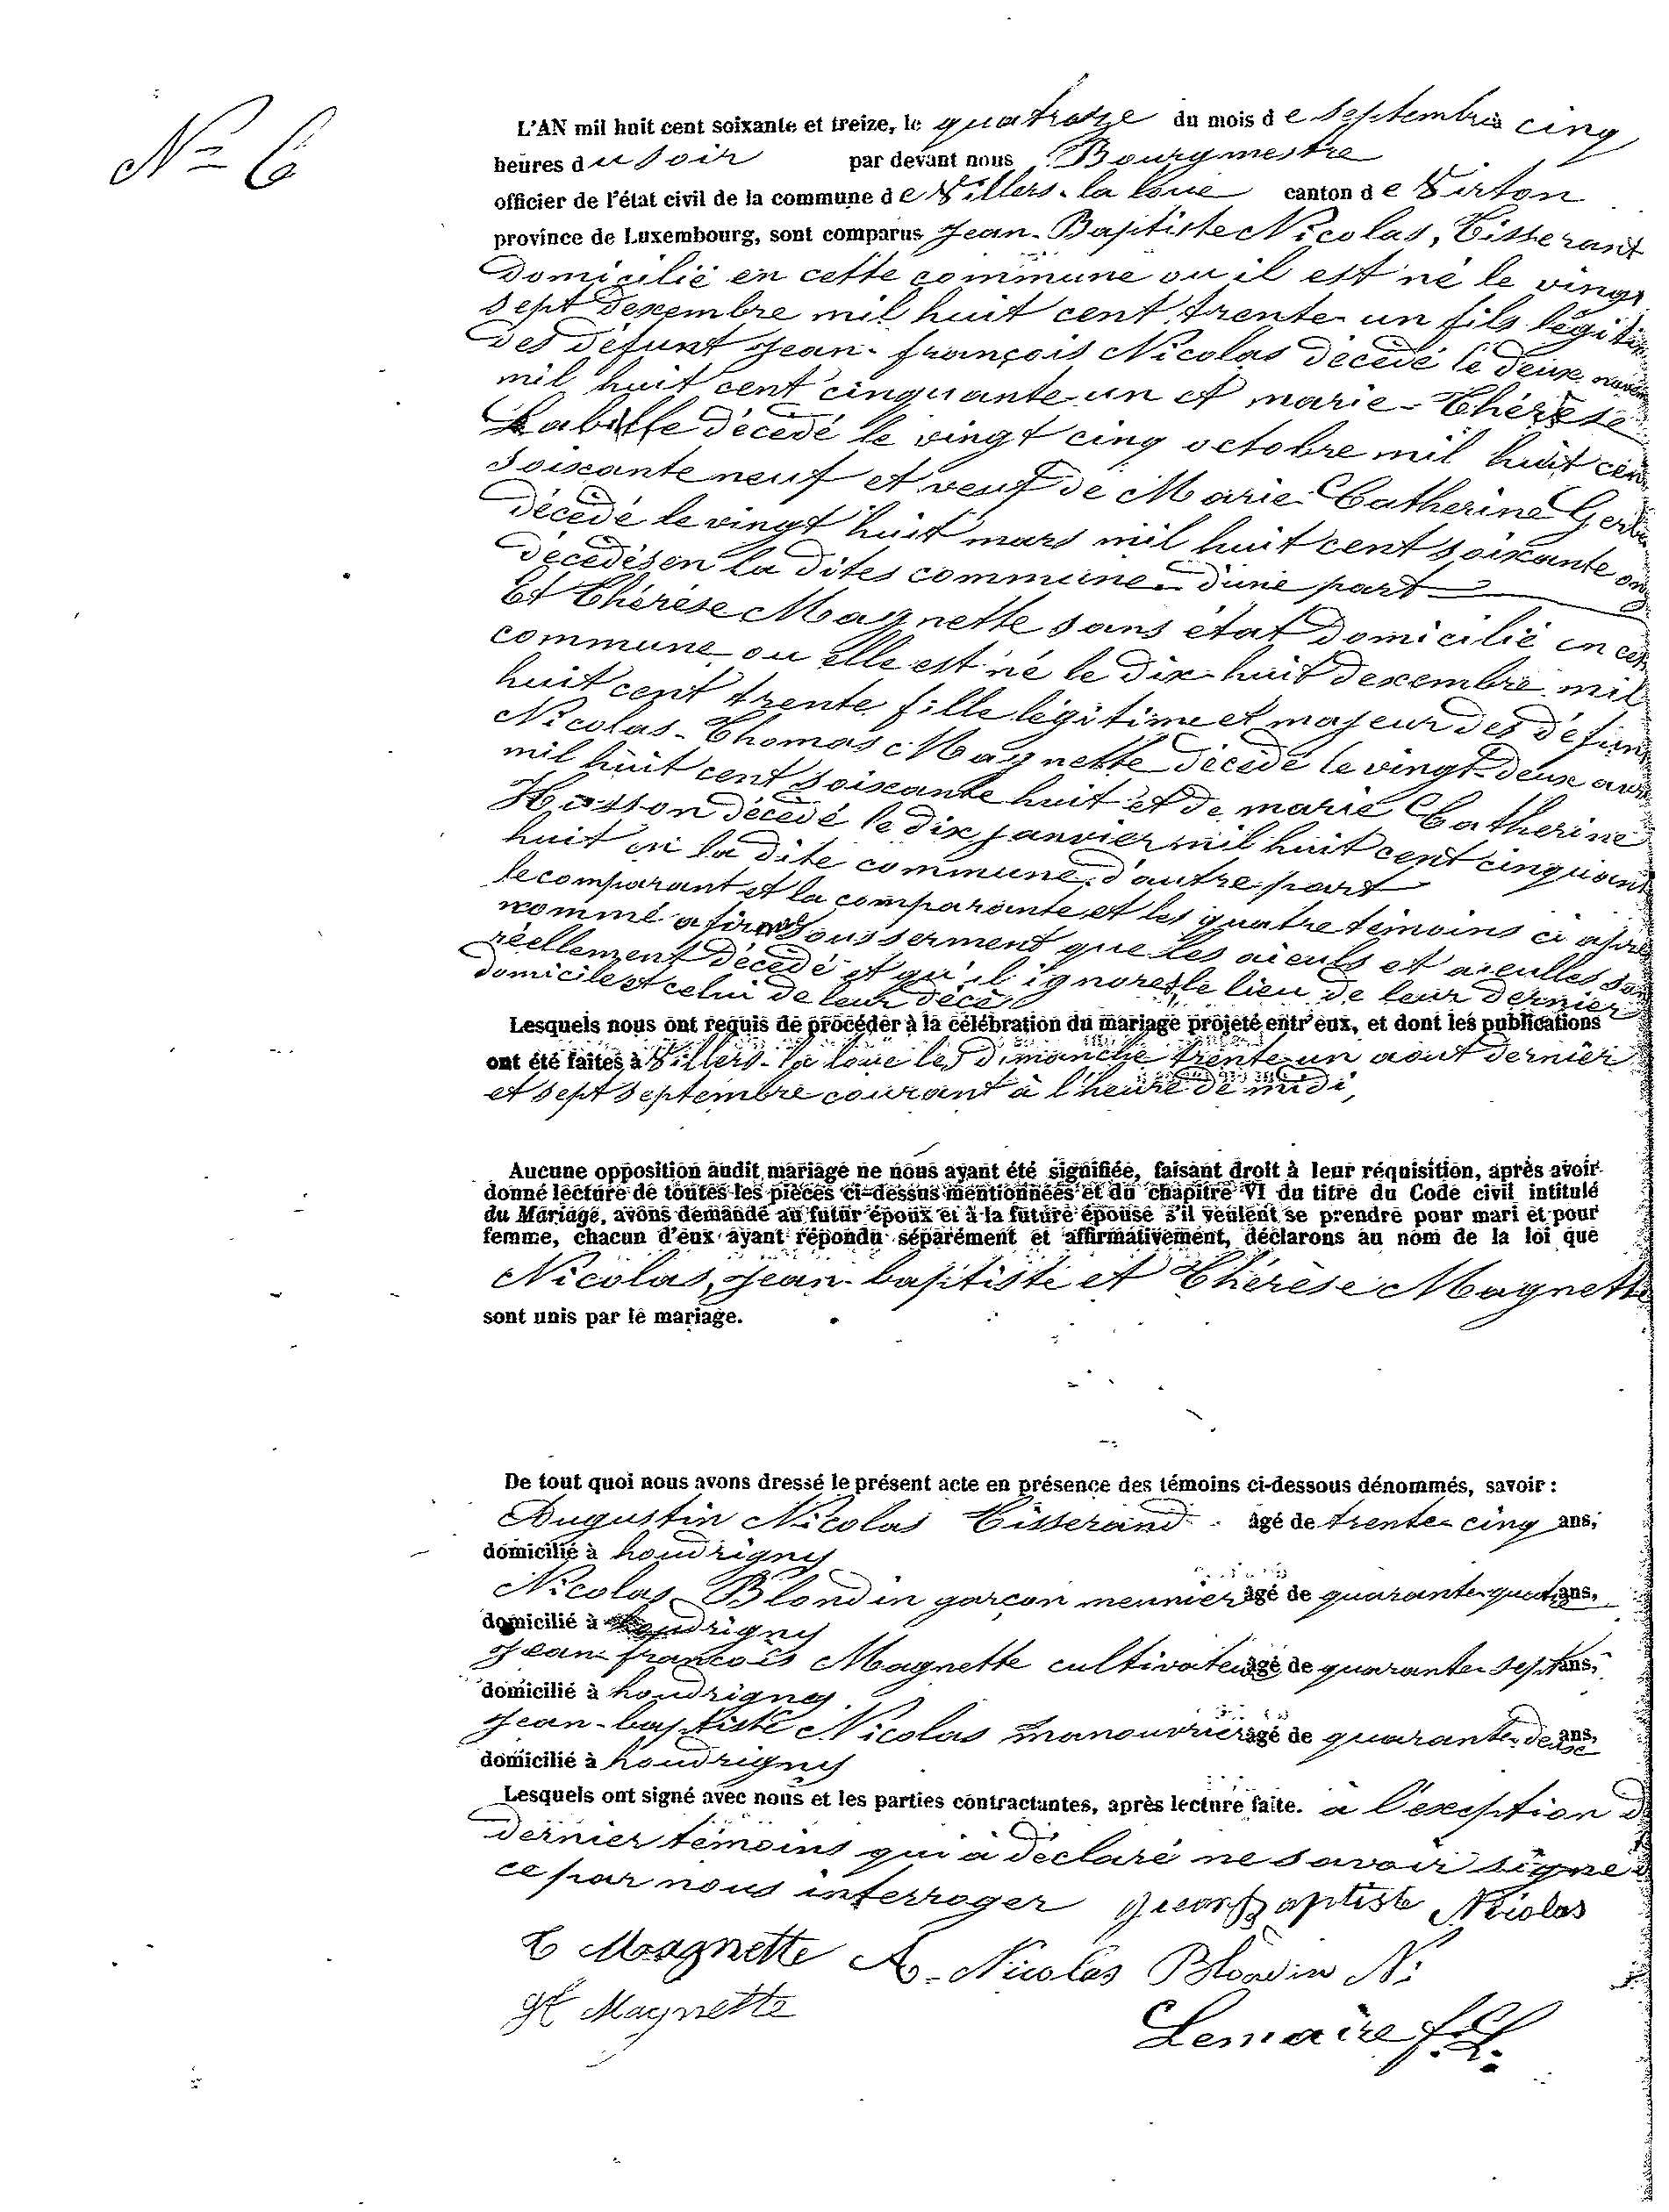 N° 6
L'AN mil huit cent soixante et treize, le quatorze du mois de septembre à cinq
heures du soir par devant nous Bourgmestre
officier de l'état civil de la commune de Villers-la loue canton de Virton
province de Luxembourg, sont comparus Jean-Baptiste Nicolas, Tisserant
domicilié en cette commune ou il est né le vingt
sept dexembre mil huit cent trente-un fils légitim
des défunt Jean-françois Nicolas décédé le deux
mil huit cent cinquante-un et marie-Thérèse
Labille décédé le vingt cinq octobre mil huit cen
soixante neuf et veuf de Marie Catherine
décédé le vingt huit mars mil huit cent soixante on
décédés en la dites commune d'une part
Et Thérèse Magnette sans état domicilié en cet
commune ou elle est né le dix-huit dexembre mil
huit cent trente fille légitime et majeur des défun
Nicolas-Thomas Magnette décédé le vingt-deux avr
mil huit cent soixante huit et de marie Catherine
Husson décédé le dix janvier mil huit cent cinquant
huit en la dite commune d'autre part
le comparant et la comparante et les quatre témoins ci apre
nommé sous serment que les aieuls et aieulles son
réellement décédé et qu'il ignores le lieu de leur dernier
domicile et celui de leur décè
Lesquels nous ont requis de procéder à la célébration du mariage projeté entr'eux, et dont les publications
ont été faites à Villers-la loue les dimanche trente-un aout dernier
et sept septembre courant à l'heure de midi,
Aucune opposition audit mariage ne nous ayant été signifiée, faisant droit à leur réquisition, après avoir
donné lecture de toutes les pièces ci-dessus mentionnées et du chapitre VI du titre du Code civil intitulé
du Mariage, avons demandé au futur époux et à la future épouse s'il veulent se prendre pour mari et pour
femme, chacun d'eux ayant répondu séparément et affirmativement, déclarons au nom de la loi que
Nicolas, Jean-baptiste et Thérèse Magnette
sont unis par le mariage.
De tout quoi nous avons dressé le présent acte en présence des témoins ci-dessous dénommés, savoir :
Augustin Nicolas Tisserand âgé de trente-cinq ans,
domicilié à houdrigny
Nicolas Blondin garçon meunier âgé de quarante-quatre ans,
domicilié à houdrigny
Jean-francois Magnette cultivateur âgé de quarante-sept ans,
domicilié à houdrigny
Jean-baptiste Nicolas manouvrier âgé de quarante-deux ans,
domicilié à houdrigny
Lesquels ont signé avec nous et les parties contractantes, après lecture faite. à l'exeption d
dernier témoins qui à déclaré ne savoir signer
ce par nous interroger Jean Baptiste Nicolas
T Magnette A. Nicolas Blondin N:
Jf Magnette
Lemaire f.L.